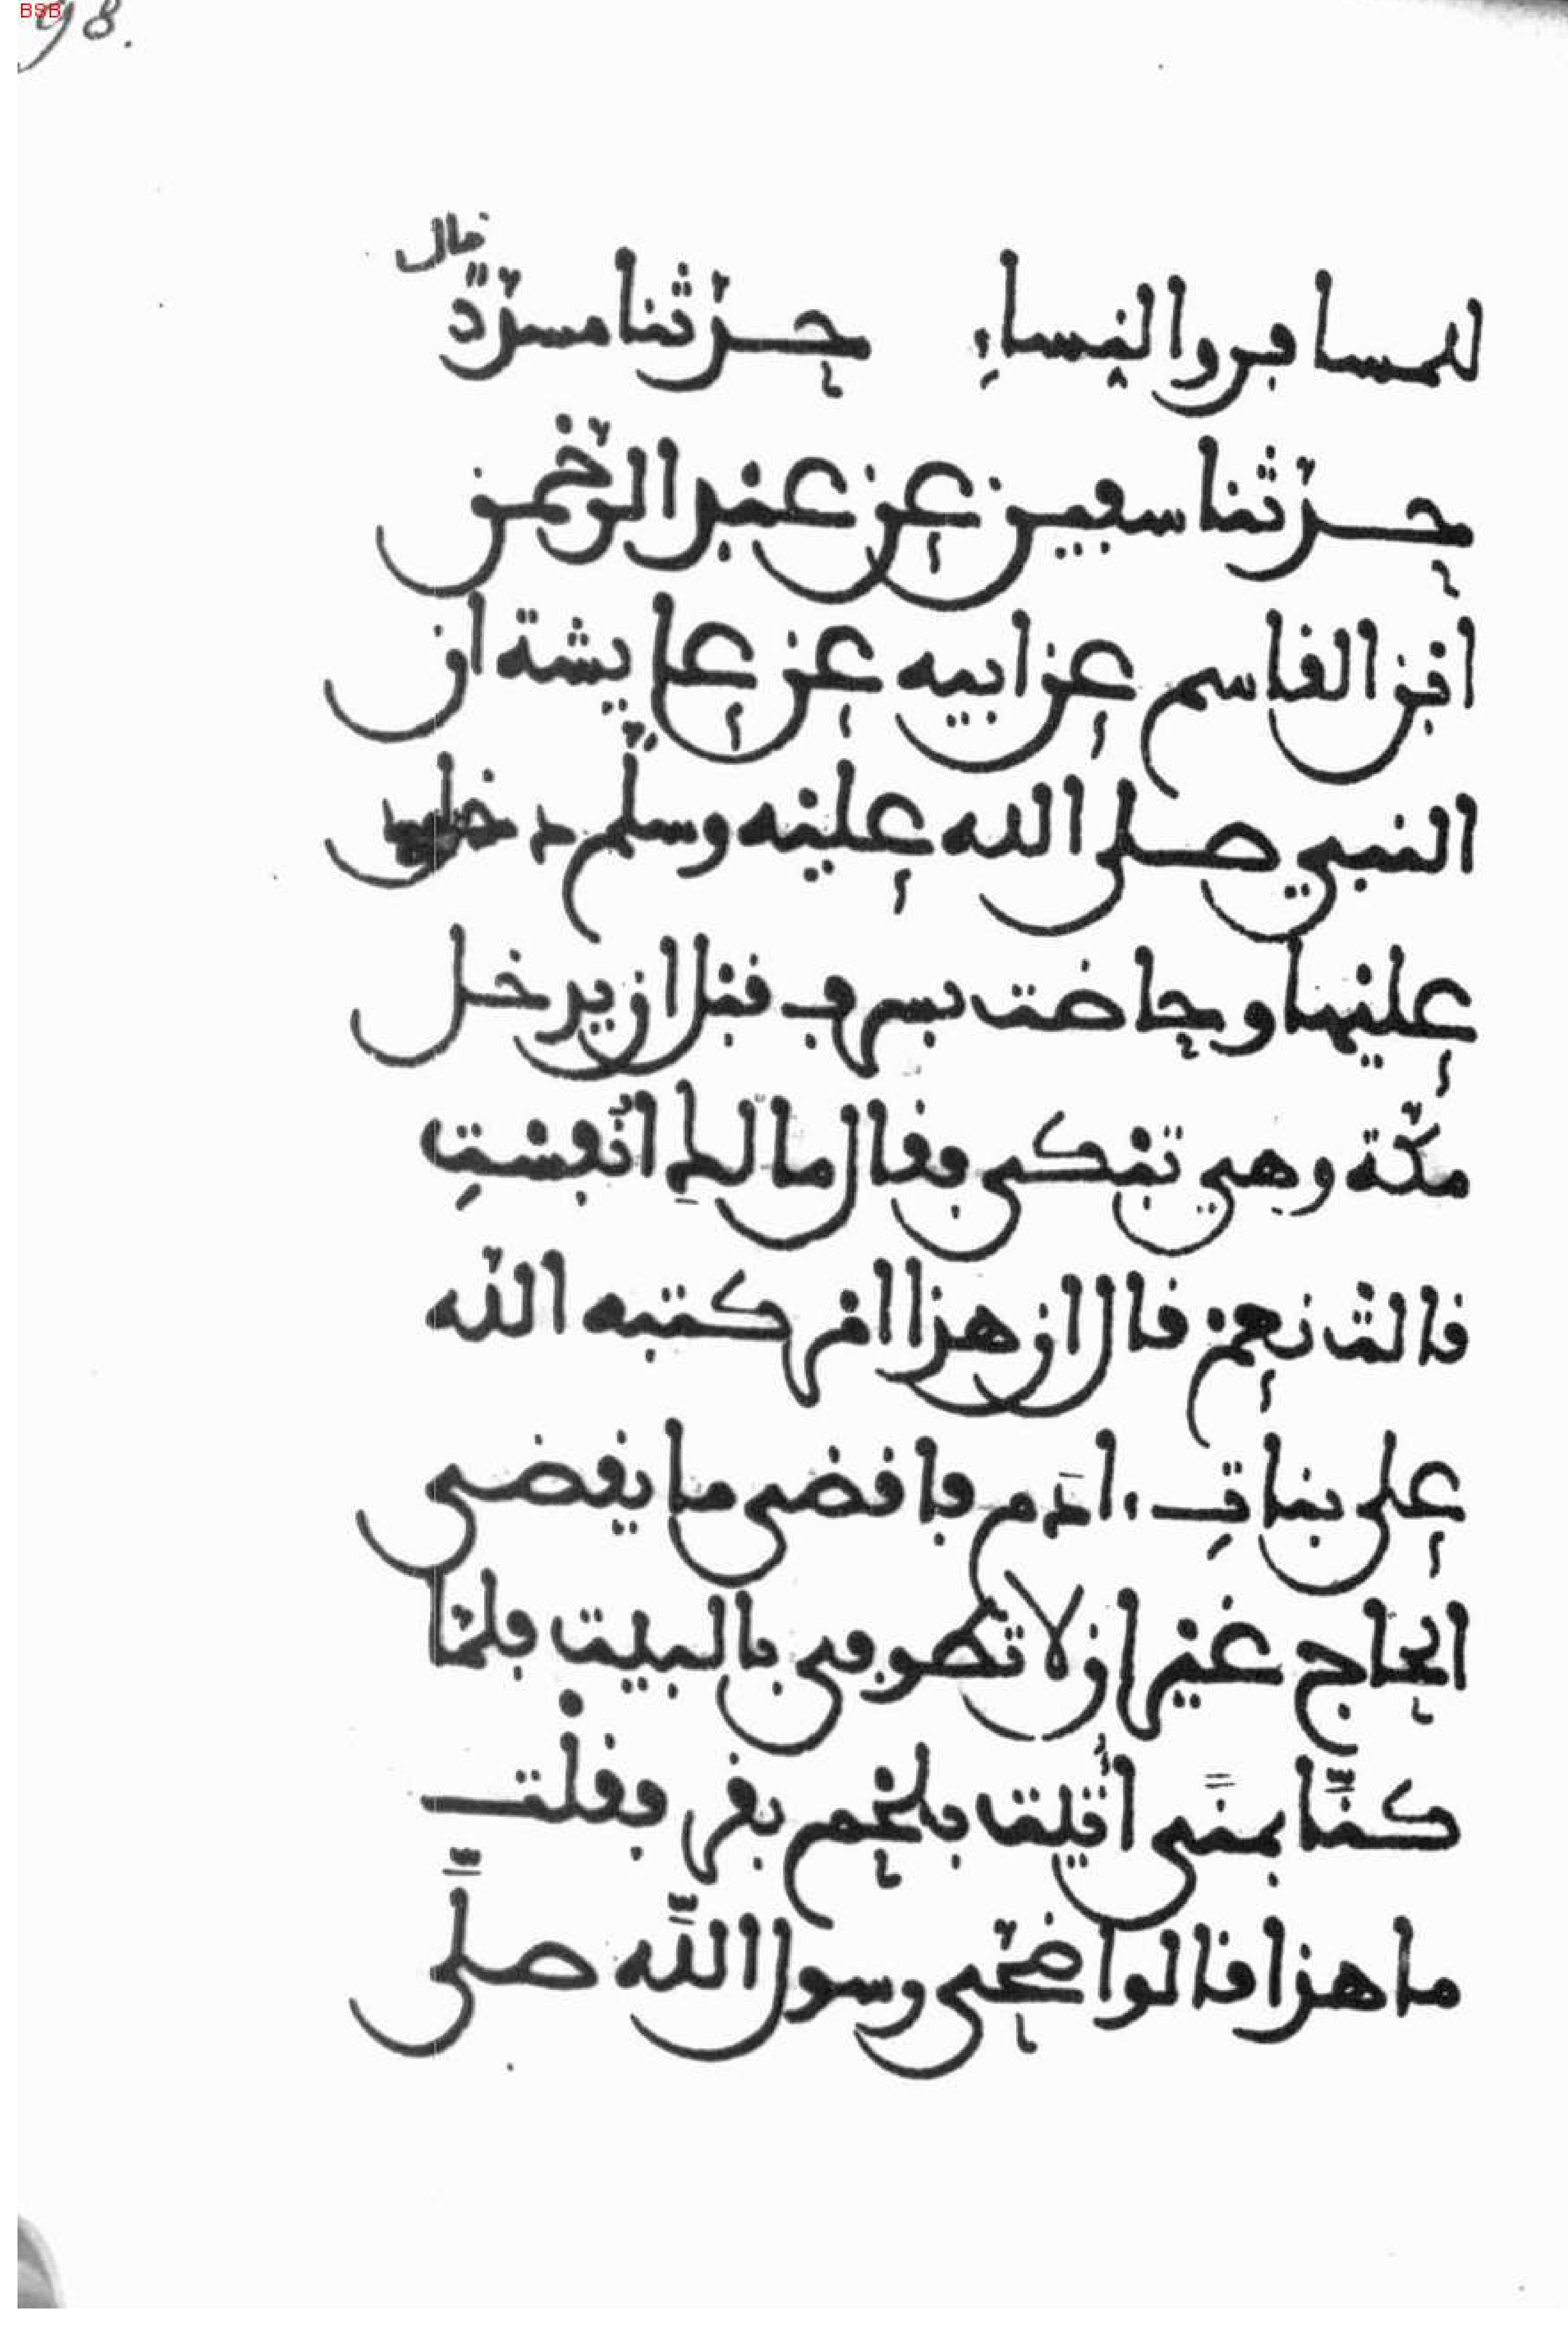 BSB
98.
قال
للمسافر والنساءِ حدثنا مسدّد
حدثنا سفين عن عبد الرحمن
ابن القاسم عن ابيه عن عايشة ان
النبي صلى الله عليه وسلّم دخل
عليها وحاضت بسرف قبل ان يدخل
مكّة وهي تبكي فقال ما لكِ انُفِسْتِ
قالت نعم قال ان هذا امر كتبه اللّه
على بناتِ ءادَم فاقضى ما يقضى
الحاج غير ان لا تطوفى بالبيت فلمّا
كنّا بمنًى اُتيت بلحم بقر فقلت
ما هذا قالوا ضحّى رسول اللَّه صلَّى